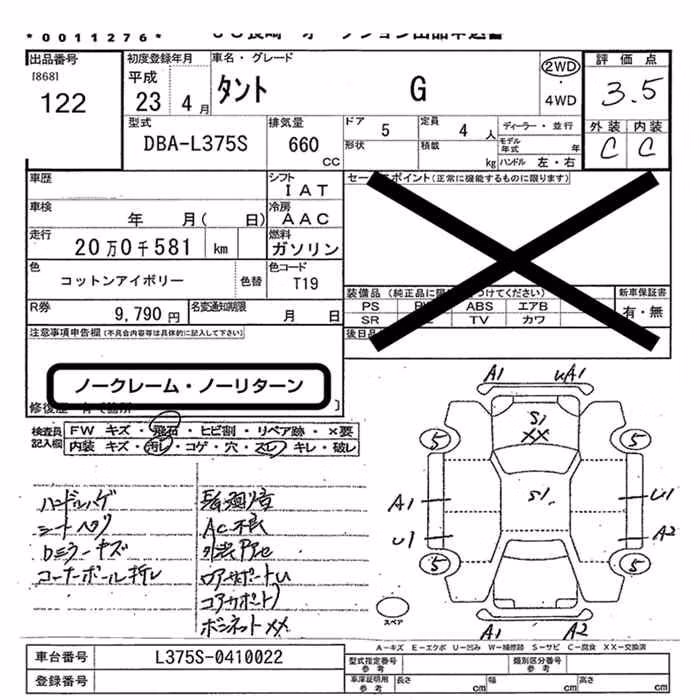 *0011276* ＪＵ長崎 オークション出品申込書
出品番号 [868] 122
初度登録年月 平成 23 4月
車名・グレード タント G
2WD・4WD
評価点 3.5
外装 内装 C C
型式 DBA-L375S
排気量 660 CC
ドア 5 定員 4人 ディーラー・並行
形状 積載 kg モデル年式 年
ハンドル 左・右
車歴
シフト IAT
セールスポイント(正常に機能するものに限ります)
車検 年 月( 日)
冷房 AAC
走行 20万0千581 km
燃料 ガソリン
色 コットンアイボリー 色替
色コード T19
装備品(純正品に限 つけてください) 新車保証書
PS ABS エアB 有・無
SR TV カワ
R券 9,790円 名変通知期限 月 日
後日品
注意事項申告欄(不具合内容等は具体的に記入して下さい)
ノークレーム・ノーリターン
修復歴 有 箇所
検査員記入欄
FW キズ・飛石・ヒビ割・リペア跡・×要
内装 キズ・汚レ・コゲ・穴・スレ・キレ・破レ
ハンドルハゲ
シートヘタリ
ロミラーキズ
コーナーポール折レ
AC不良
ボンネットXX
A1 UA1
S1
XX
5 5
S1
A1 U1
U1 A2
5 5
A1 A2
スペア
A-キズ E-エクボ U-凹み W-補修跡 S-サビ C-腐食 XX-交換済
車台番号 L375S-0410022
型式指定番号 参考 類別区分番号 参考
登録番号
車庫証明用 参考 長さ cm 幅 cm 高さ cm